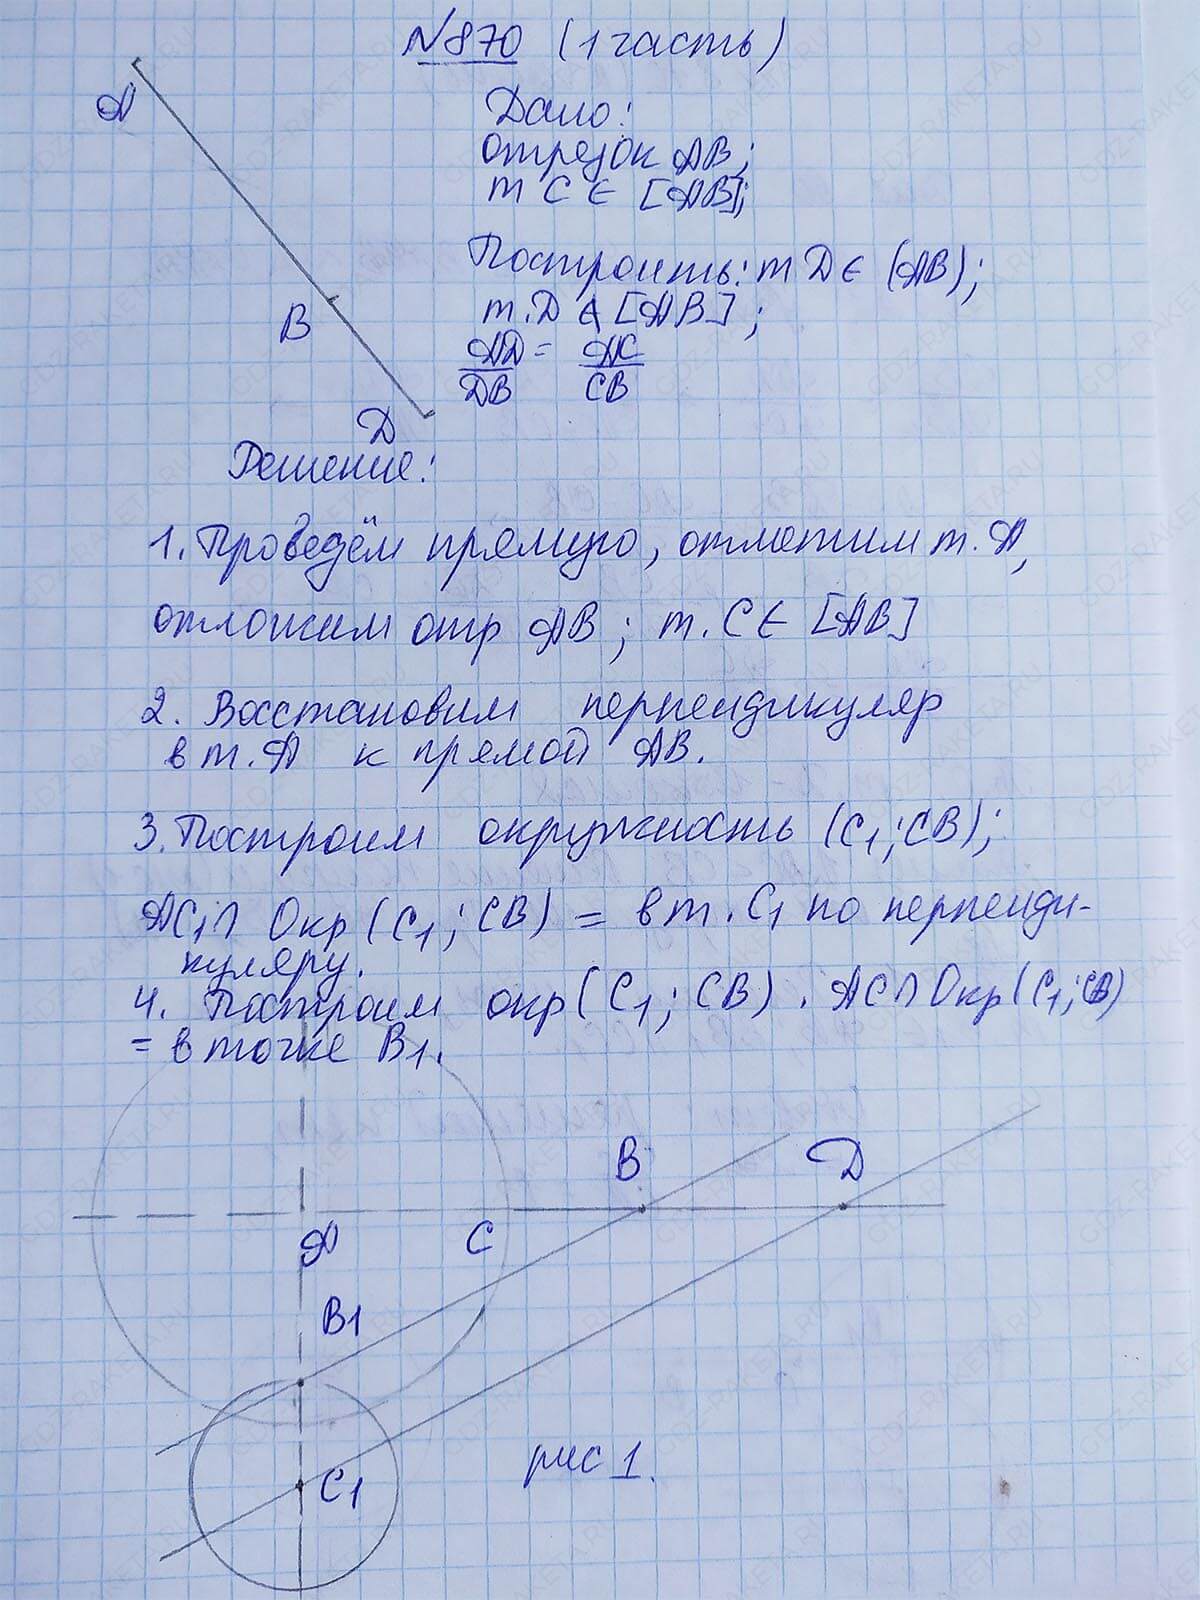 №870 (1 часть)
A
Дано:
отрезок AB;
т C ∈ [AB];
Построить: т D ∈ (AB);
т. D ∉ [AB];
AD/DB = AC/CB
B
D
Решение:
1. Проведём прямую, отметим т. A,
отложим отр AB; т. C ∈ [AB]
2. Восстановим перпендикуляр
в т. A к прямой AB.
3. Построим окружность (C1; CB);
AC1 ∩ Окр (C1; CB) = в т. C1 по перпенди-
куляру.
4. Построим окр (C1; CB). AC ∩ Окр (C1; CB)
= в точке B1.
B D
A C
B1
C1
рис 1.
GDZ-RAKETA.RU